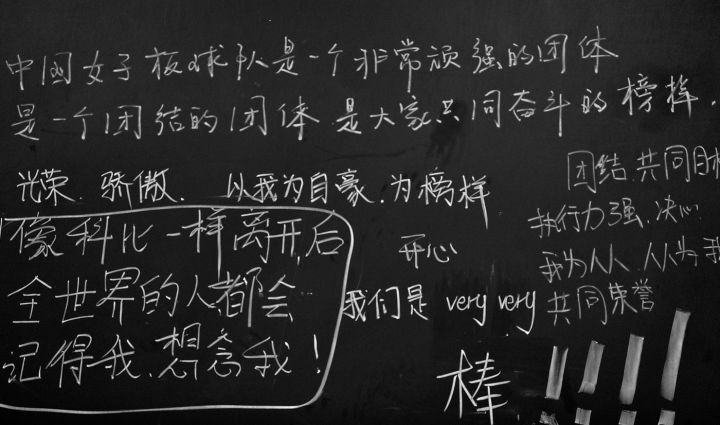 中国女子板球队是一个非常顽强的团体
是一个团结的团体 是大家共同奋斗的榜样.
光荣. 骄傲. 以我为自豪.为榜样
团结.共同目标
执行力强.决心
我为人人 人人为我
共同荣誉
像科比一样离开,后
全世界的人都会
记得我.想念我!
开心
我们是 very very
棒!!!!